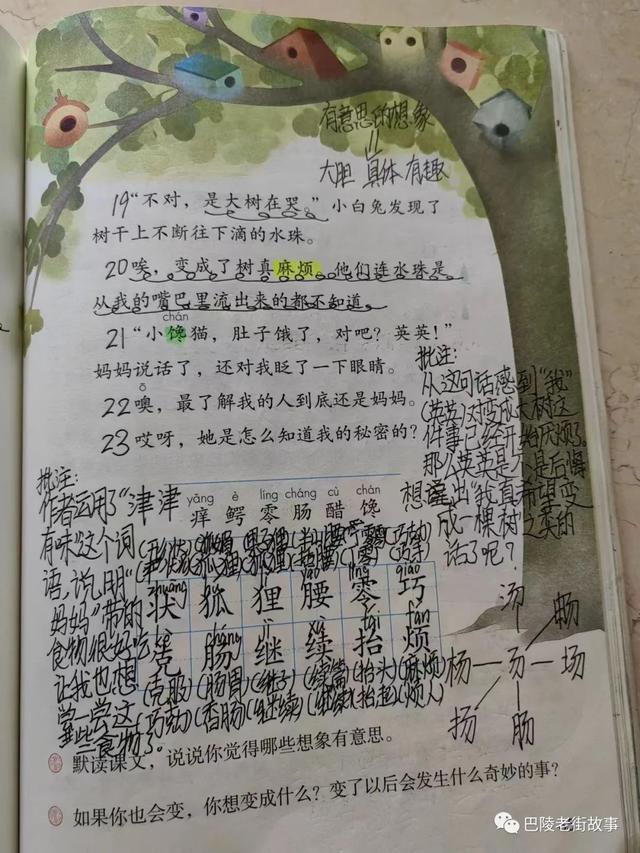 有意思的想象
大胆 具体 有趣
19“不对，是大树在哭。”小白兔发现了
树干上不断往下滴的水珠。
20唉，变成了树真麻烦。他们连水珠是
从我的嘴巴里流出来的都不知道。
chán
21“小馋猫，肚子饿了，对吧？英英！”
妈妈说话了，还对我眨了一下眼睛。
ō
22噢，最了解我的人到底还是妈妈。
23哎呀，她是怎么知道我的秘密的？
批注：
从这句话感到“我”
(英英)对变成大树这
件事已经开始厌烦了。
那个英英是不是后悔
想出“我真希望变
成一棵树”之类的
话了呢？
批注：
作者运用了“津津
有味”这个词
语，说明“
妈妈”带的
食物很好吃
让我也想
尝一尝这
些食物了。
yǎng è líng cháng cù chán
痒 鳄 零 肠 醋 馋
zhuàng hú lí yāo líng qiǎo
状 狐 狸 腰 零 巧
kè cháng jì xù tái fán
克 肠 继 续 抬 烦
(克服)(肠胃)(继子)(续篇)(抬头)(麻烦)
(巧克)(香肠)(继续)(抬起)(烦人)
汤 畅
杨 场
扬 肠
默读课文，说说你觉得哪些想象有意思。
如果你也会变，你想变成什么？变了以后会发生什么奇妙的事？
巴陵老街故事